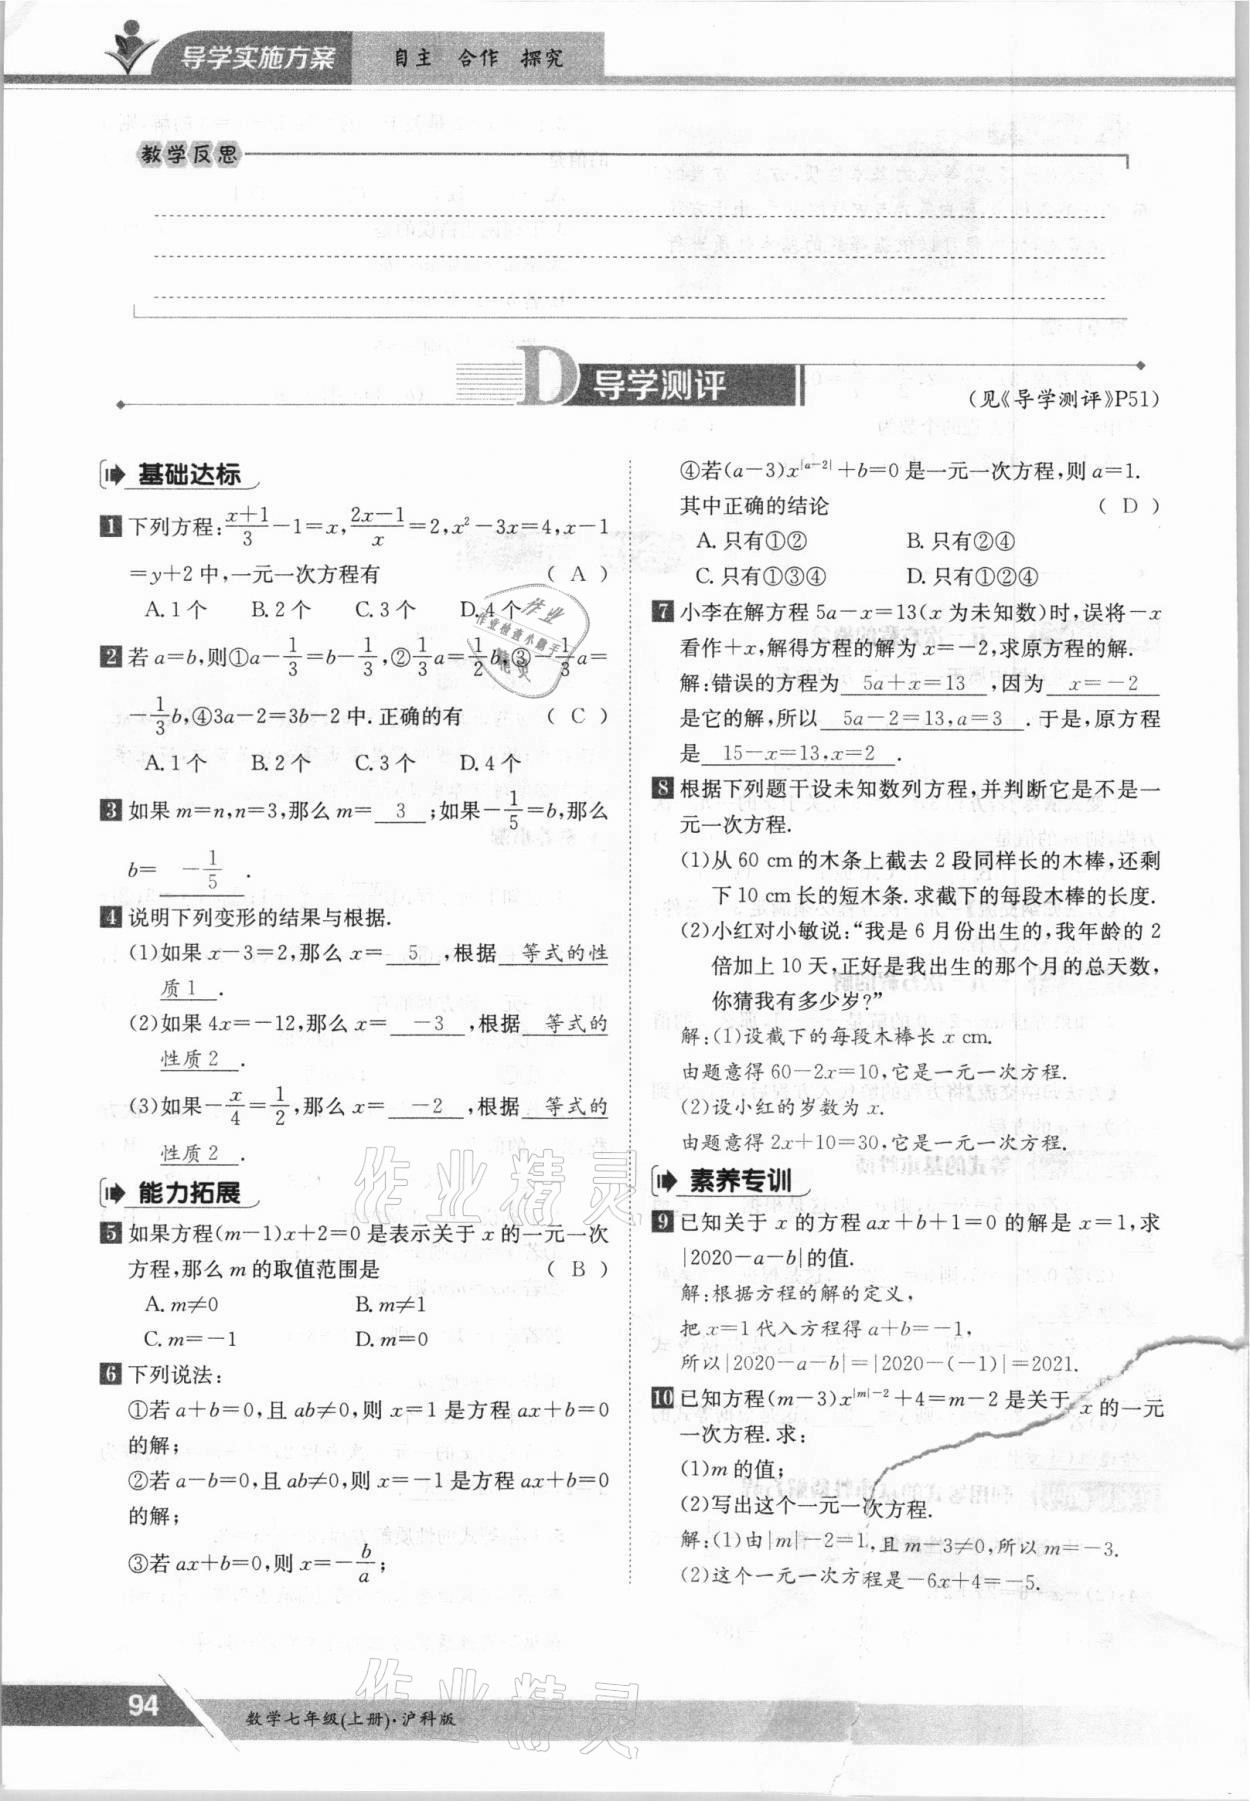 导学实施方案 自主 合作 探究
教学反思
D 导学测评
(见《导学测评》P51)
基础达标
1 下列方程:(x+1)/3-1=x,(2x-1)/x=2,x²-3x=4,x-1
=y+2中,一元一次方程有 ( A )
A.1个 B.2个 C.3个 D.4个
2 若a=b,则①a-1/3=b-1/3,②1/3a=1/2b,③-1/3a=
-1/3b,④3a-2=3b-2中.正确的有 ( C )
A.1个 B.2个 C.3个 D.4个
3 如果m=n,n=3,那么m= 3 ;如果-1/5=b,那么
b= -1/5 .
4 说明下列变形的结果与根据.
(1)如果x-3=2,那么x= 5 ,根据 等式的性
质1 .
(2)如果4x=-12,那么x= -3 ,根据 等式的
性质2 .
(3)如果-x/4=1/2,那么x= -2 ,根据 等式的
性质2 .
能力拓展
5 如果方程(m-1)x+2=0是表示关于x的一元一次
方程,那么m的取值范围是 ( B )
A.m≠0 B.m≠1
C.m=-1 D.m=0
6 下列说法:
①若a+b=0,且ab≠0,则x=1是方程ax+b=0
的解;
②若a-b=0,且ab≠0,则x=-1是方程ax+b=0
的解;
③若ax+b=0,则x=-b/a;
④若(a-3)x^|a-2|+b=0是一元一次方程,则a=1.
其中正确的结论 ( D )
A.只有①② B.只有②④
C.只有①③④ D.只有①②④
7 小李在解方程5a-x=13(x为未知数)时,误将-x
看作+x,解得方程的解为x=-2,求原方程的解.
解:错误的方程为 5a+x=13 ,因为 x=-2
是它的解,所以 5a-2=13,a=3 .于是,原方程
是 15-x=13,x=2 .
8 根据下列题干设未知数列方程,并判断它是不是一
元一次方程.
(1)从60 cm的木条上截去2段同样长的木棒,还剩
下10 cm长的短木条.求截下的每段木棒的长度.
(2)小红对小敏说:“我是6月份出生的,我年龄的2
倍加上10天,正好是我出生的那个月的总天数,
你猜我有多少岁?”
解:(1)设截下的每段木棒长x cm.
由题意得60-2x=10,它是一元一次方程.
(2)设小红的岁数为x.
由题意得2x+10=30,它是一元一次方程.
素养专训
9 已知关于x的方程ax+b+1=0的解是x=1,求
|2020-a-b|的值.
解:根据方程的解的定义,
把x=1代入方程得a+b=-1,
所以|2020-a-b|=|2020-(-1)|=2021.
10 已知方程(m-3)x^|m|-2+4=m-2是关于x的一元
一次方程.求:
(1)m的值;
(2)写出这个一元一次方程.
解:(1)由|m|-2=1,且m-3≠0,所以m=-3.
(2)这个一元一次方程是-6x+4=-5.
94 数学七年级(上册)·沪科版
作业精灵
作业精灵
作业
作业检查小助手
精灵